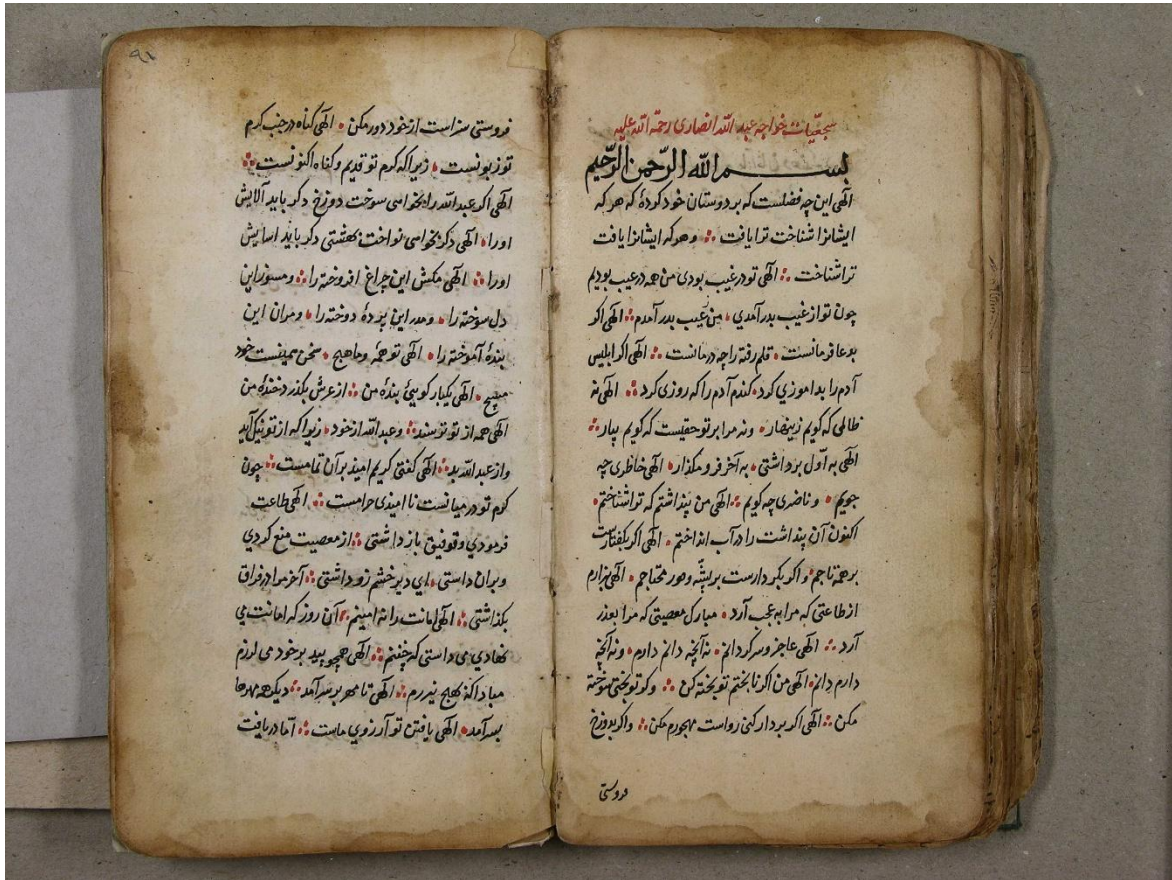 سجعیات خواجه عبد الله انصاری رحمة الله علیه
بسم الله الرّحمن الرّحیم
الهی این چه فضلست که بر دوستان خود کردهٔ که هر که
ایشانرا شناخت ترا یافت ؞ و هر که ایشانرا یافت
ترا شناخت ؞ الهی تو در غیب بودی من همه در عیب بودیم
چون تو از غیب بدر آمدی ، من عیب بدر آمدم ؞ الهی اکر
بوعا فرمانست ، قلم رفته را چه درمانست ؞ الهی اکر ابلیس
آدم را بد اموزی کرد ، کندم آدم را که روزی کرد ؞ الهی نه
ظالمی که کویم زینهار ، و نه مرا بر تو حقیست که کویم بیار ؞
الهی به اوّل برداشتی ، به آخر فرو مکذار ، الهی خاظری چه
جویم ، و ناضری چه کویم ؞ الهی من پنداشتم که ترا شناختم ،
اکنون آن پنداشت را در آب انداختم ، الهی اکر بکفتارست
بر همه تاجم ، و اکر بکردارست بر پشّه و مور محتاجم ، الهی بیزارم
از طاعتی که مرا به عجب آرد ، مبارک معصیتی که مرا بعذر
آرد ؞ الهی عاجز و سرکردانم ، نه آنچه دانم دارم ، و نه آنچه
دارم دانم ، الهی من اکر نابختم تو بخته کن ؞ و کر تو بختی سوخته
مکن ؞ الهی اکر بر دار کنی رواست مهجورم مکن ؞ و اکر بدوزخ
فروستی
۹۸
فروستی سزاست از خود دور مکن ، الهی کناه در جنب کرم
تو زبونست ، زیرا که کرم تو قدیم و کناه اکنونست ؞
الهی اکر عبد الله را بخواهی سوخت دوزخ دکر باید آلایش
اورا ، الهی دکر بخواهی نواخت بهشتی دکر باید اسایش
اورا ؞ الهی مکش این چراغ افروخته را ؞ و مسوز این
دل سوخته را ، و مدر این پردهٔ دوخته را ، و مران این
بندهٔ آموخته را ، الهی تو همهٔ و ما هیچ ، سخن همینست خود
مپیچ ، الهی یکبار کویئ بندهٔ من ؞ از عرش بکذرد خندهٔ من
الهی همه از تو ترسند ؞ و عبد الله از خود ، زیرا که از تو نیک آید
و از عبد الله بد ؞ الهی کفتی کریم امید بر آن تمامست ؞ چون
کرم تو در میانست نا امیدی حرامست ؞ الهی طاعت
فرمودی و توفیق باز داشتی ؞ از معصیت منع کردی
و بران داستی ، ای دیر خشم زود اشتی ؞ آخر مرا در فراق
بکذاشتی ؞ الهی امانت را نه امینم ؞ آن روز که امانت می
نهادی می داستی که چنینم ؞ الهی همچو بید بر خود می لرزم
مبادا که بهیچ نیرزم ؞ الهی تا مهر بر سر آمد ؞ دیکر همه مهرها
بسر آمد ، الهی یافتن تو آرزوی ماست ؞ امّا دریافت